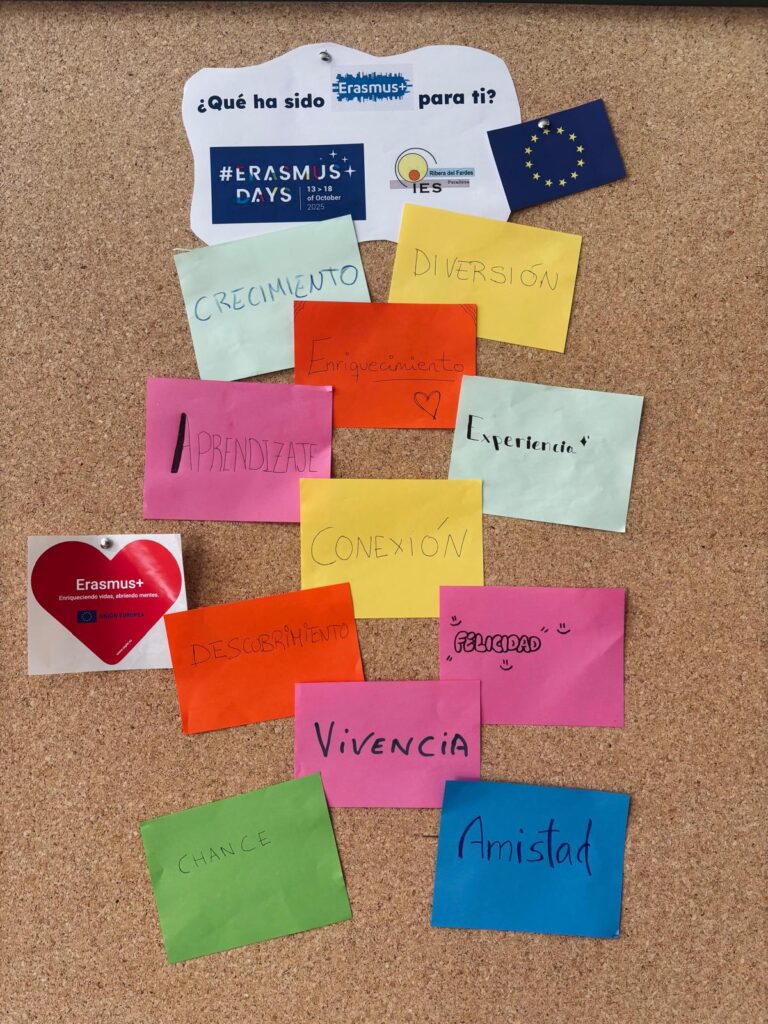 ¿Qué ha sido Erasmus+ para ti?
#ERASMUS
DAYS
13 > 18
of October
2025
Ribera del Fardes
Purullena
IES
CRECIMIENTO
DIVERSIÓN
Enriquecimiento
APRENDIZAJE
Experiencia
CONEXIÓN
Erasmus+
Enriqueciendo vidas, abriendo mentes.
UNIÓN EUROPEA
DESCUBRIMIENTO
"FELICIDAD"
VIVENCIA
CHANCE
Amistad